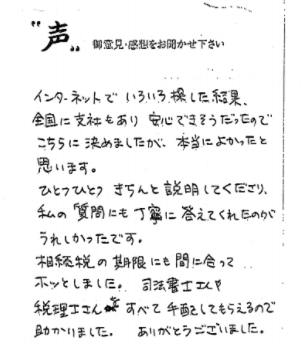 "声" 御意見・感想をお聞かせ下さい
インターネットで いろいろ探した結果、
全国に支社もあり 安心できそうだったので
こちらに決めましたが、本当によかったと
思います。
ひとつひとつ きちんと説明してくださり、
私の質問にも丁寧に答えてくれたのが
うれしかったです。
相続税の期限にも間に合って
ホッとしました。 司法書士さんや
税理士さん すべて手配してもらえるので
助かりました。 ありがとうございました。